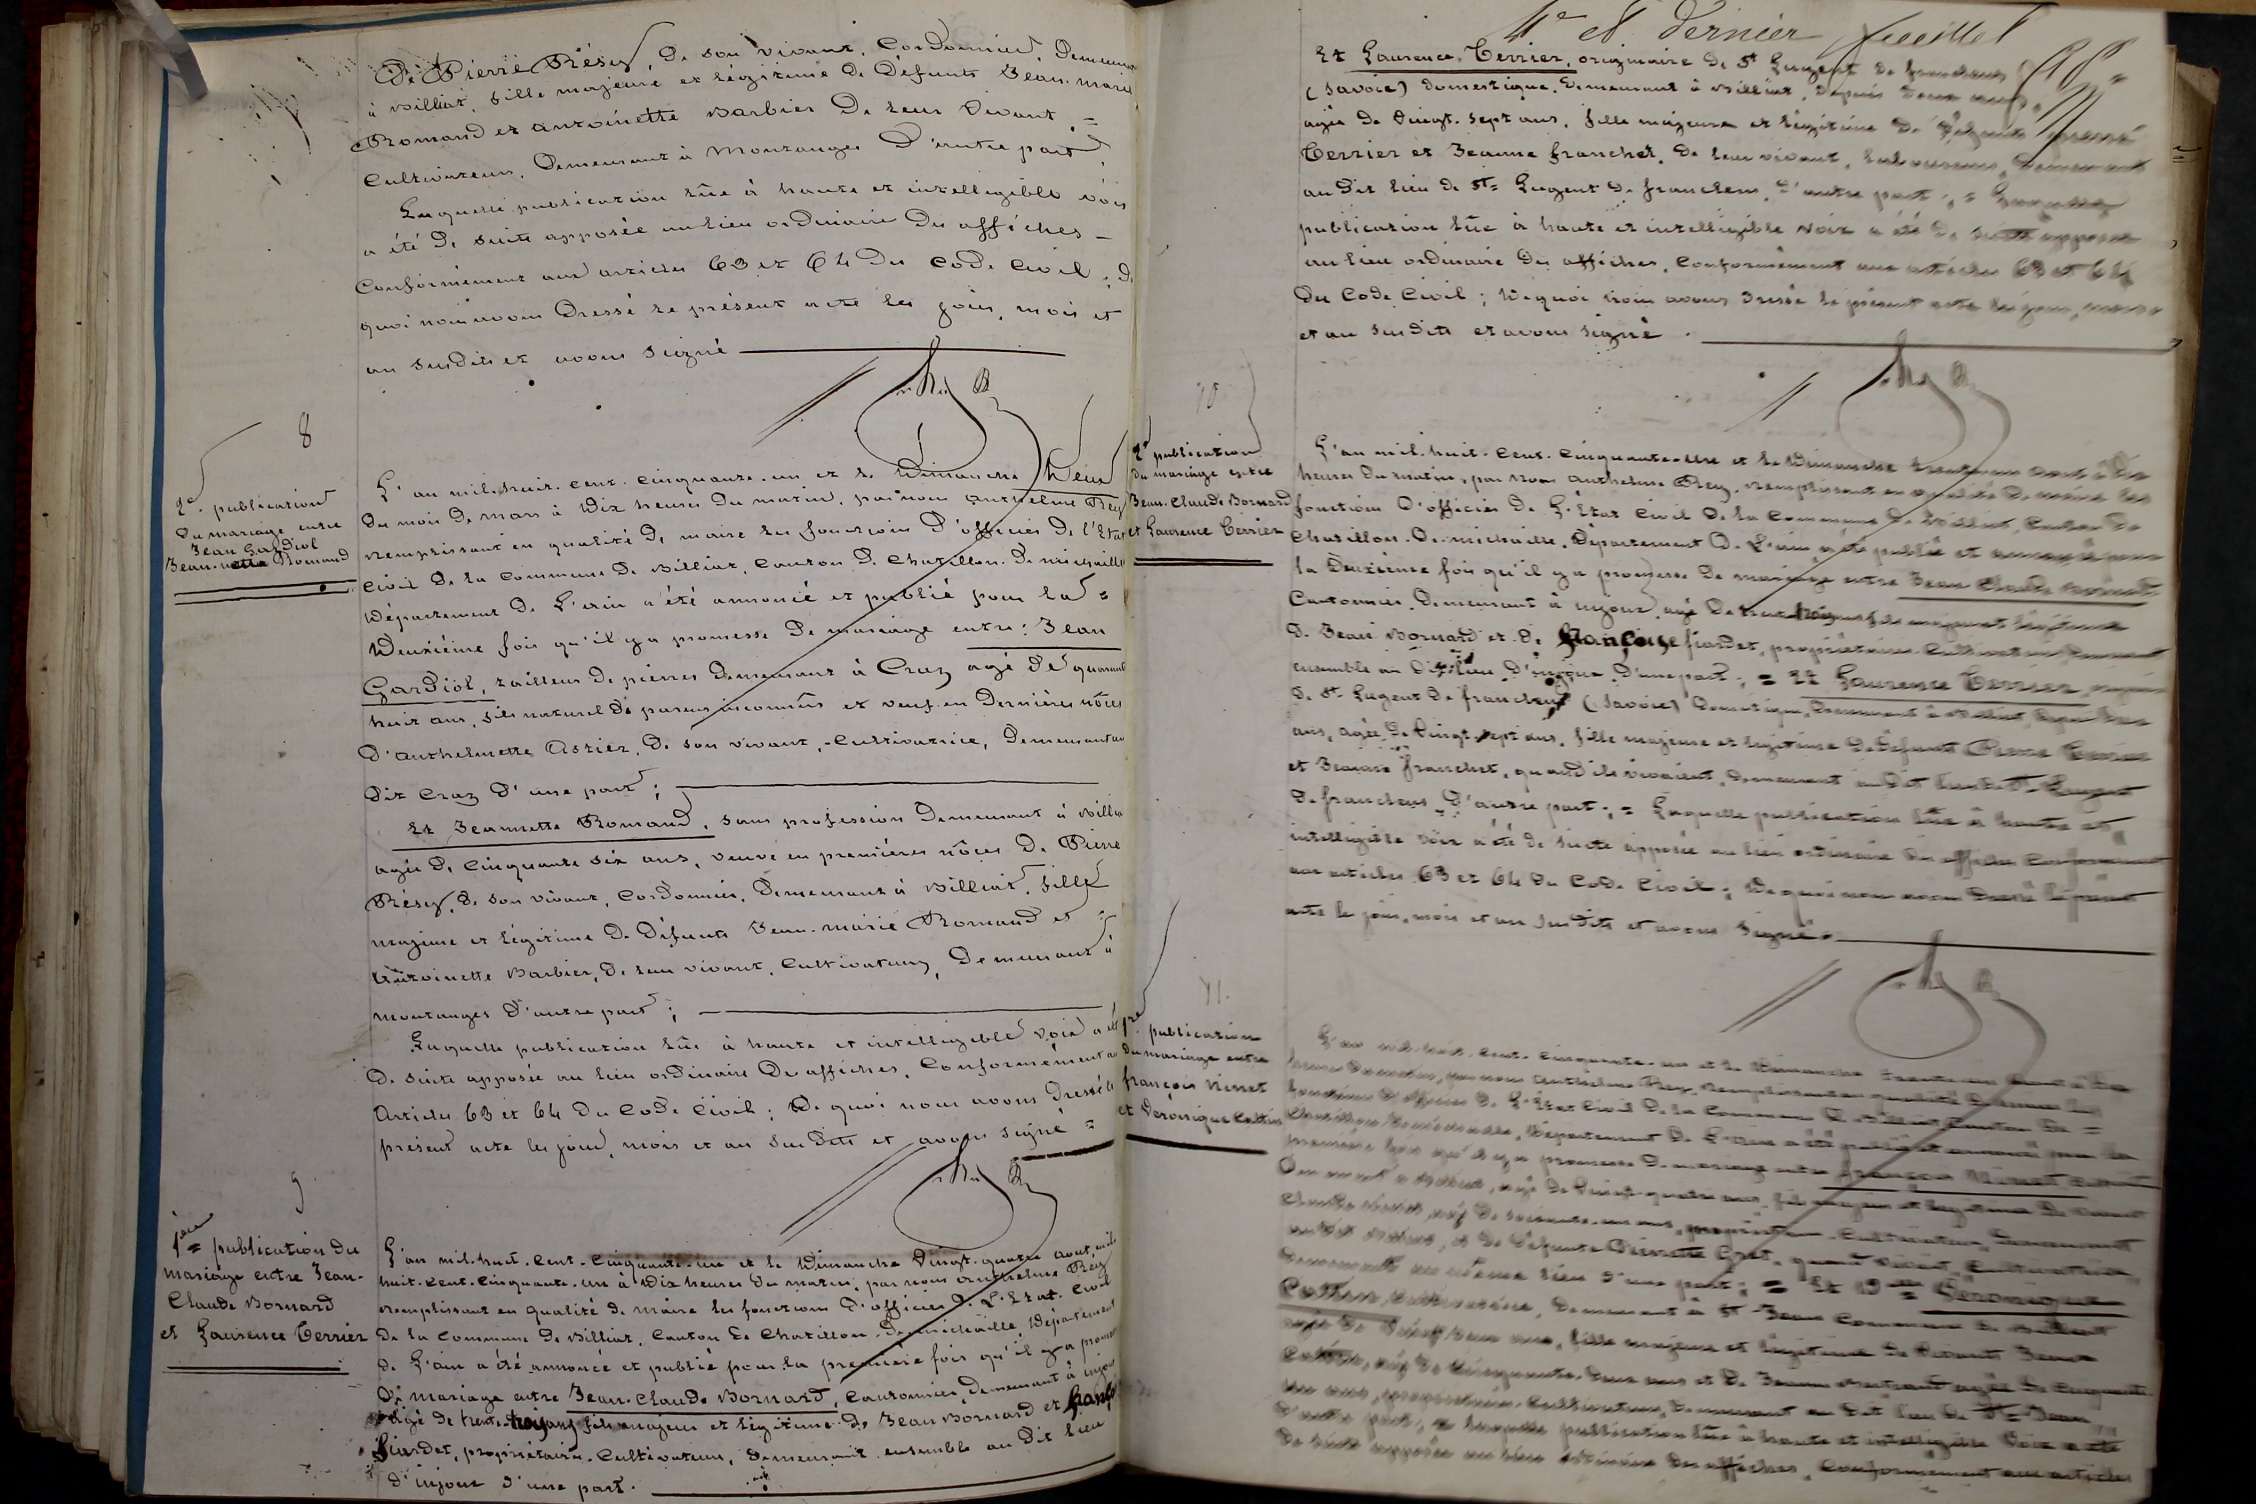 De Pierre Résey, de son vivant, Cordonnier, Demeurant
à Billiat, fille majeure et légitime de Défunts Jean-marie
Romand et antoinette Barbier De leur vivant, =
Cultivateurs, Demeurant à Montanges D'autre part,
Laquelle publication lûe à haute et intelligible voix
a été de suite apposée au lieu ordinaire des affiches –
Conformément aux articles 63 et 64 du Code Civil ; de
quoi nous avons Dressé le présent acte les jour, mois et
an susdits et avons signé
8
2e publication
Du mariage entre
Jean Gardiol
Jeannette Romand
L'an mil. huit. cent. cinquante. un et le Dimanche Deux
du mois de mars à Dix heures du matin, par nous anthelme Rey
remplissant en qualité de maire les fonctions D'officier de l'Etat
civil de la Commune de Billiat, Canton de Chatillon. de michaille
Département de L'ain a été annoncé et publié pour la =
Deuxième fois qu'il y a promesse de mariage entre : Jean
Gardiol, tailleur de pierres Demeurant à Craz agé de quarante
huit ans, fils naturel de parens inconnûs et veuf en Dernières nôces
D'anthelmette Astier, de son vivant, Cultivatrice, Demeurant au
dit Craz D'une part ;
Et Jeannette Romand, sans profession Demeurant à Billiat
agée de Cinquante six ans, veuve en premières nôces de Pierre
Résey, de son vivant, Cordonnier, Demeurant à Billiat, fille
majeure et légitime de Défunts Jean-marie Romand et =
Antoinette Barbier, de leur vivant, Cultivateurs, Demeurant à
montanges D'autre part ;
Laquelle publication lûe à haute et intelligible voix a été
De suite apposée au lieu ordinaire des affiches, Conformément aux
Articles 63 et 64 du Code Civil ; De quoi nous avons Dressé le
présent acte les jour, mois et an susdits et avons signé =
9
1ère publication du
mariage entre Jean-
Claude Bornard
et Laurence Terrier
L'an mil. huit. cent. cinquante-un et le Dimanche Vingt-quatre aout, mil.
huit. cent. cinquante. un à Dix heures du matin, par nous anthelme Rey
remplissant en qualité de maire les fonctions D'officier de L'Etat. Civil
De la Commune de Billiat, Canton de Chatillon. de michaille, Département
de L'ain a été annoncé et publié pour la première fois qu'il y a promesse
De mariage entre Jean-Claude Bornard, Cantonnier, Demeurant à injoux
agé de trente-trois ans fils majeur et légitime de Jean Bornard et
fiardet, propriétaires-Cultivateurs, Demeurant ensemble au Dit lieu
d'injoux d'une part.
4e et dernier feuillet
Et Laurence Terrier, originaire de St Eugent de franclens
(Savoie) domestique, Demeurant à Billiat, Depuis deux ans,
agée de Vingt-sept ans, fille majeure et légitime de Défunts Pierre
Terrier et Jeanne franchet, de leur vivant, Laboureurs, Demeurant
au Dit lieu de St= Eugent de franclens, D'autre part ; = Laquelle
publication lûe à haute et intelligible voix a été de suite apposée
au lieu ordinaire des affiches, Conformément aux articles 63 et 64
Du Code Civil ; De quoi nous avons dressé le présent acte les jour, mois
et an susdits et avons signé.
10
2e publication
du mariage entre
Jean-Claude Bornard
et Laurence Terrier
L'an mil. huit. cent. cinquante-un et le Dimanche trente-un aout à dix
heures du matin, par nous Anthelme Rey, remplissant en qualité de maire les
fonctions D'officier de L'Etat civil de la Commune de Billiat, Canton de
Chatillon. De. michaille, Département de L'ain a été publié et annoncé pour
la Deuxième fois qu'il y a promesse de mariage entre Jean Claude Bornard
Cantonnier, Demeurant à injoux agé de trente-trois ans fils majeur et légitime
de Jean Bornard et de Françoise fiardet, propriétaires-Cultivateurs demeurant
ensemble au Dit lieu D'injoux D'une part ; = Et Laurence Terrier,
de St Eugent de franclens (Savoie) Domestique, Demeurant à Billiat, depuis deux
ans, agée de Vingt-sept ans, fille majeure et légitime de Défunts Pierre Terrier
et Jeanne franchet, quand ils vivaient, demeurant au dit lieu de St Eugent
De franclens, D'autre part ; = Laquelle publication lûe à haute et
intelligible voix a été de suite apposée au lieu ordinaire des affiches conformément
aux articles 63 et 64 du Code Civil ; De quoi nous avons dressé le présent
acte le jour, mois et an susdits et avons signé.
11.
1re publication
du mariage entre
françois
et Véronique
L'an mil. huit. cent. cinquante-un et le Dimanche trente-un aout à dix
heures du matin, par nous Anthelme Rey, remplissant en qualité de maire les
fonctions d'officier de L'Etat Civil de la Commune de Billiat, Canton de =
Chatillon de michaille, Département de L'ain a été publié et annoncé pour la
première fois qu'il y a promesse de mariage entre françois
Demeurant à Billiat, agé de Vingt-quatre ans, fils majeur et légitime de vivant
Claude, agé de soixante-un ans, propriétaire-Cultivateur, Demeurant
au dit Billiat, et de Défunte Pierrette, quand vivait, Cultivatrice,
Demeurant au même lieu d'une part ; = Et Dlle = Véronique
Cultivatrice, Demeurant à St Jean Commune de Billiat
agée de Vingt-deux ans, fille majeure et légitime de vivants Jean
agé de Cinquante-deux ans et de Jeanne Bertrand agée de Cinquante-
un ans, propriétaires-Cultivateurs, Demeurant au dit lieu de St= Jean
D'autre part ; = Laquelle publication lûe à haute et intelligible voix a été
De suite apposée au lieu ordinaire des affiches, Conformément aux articles